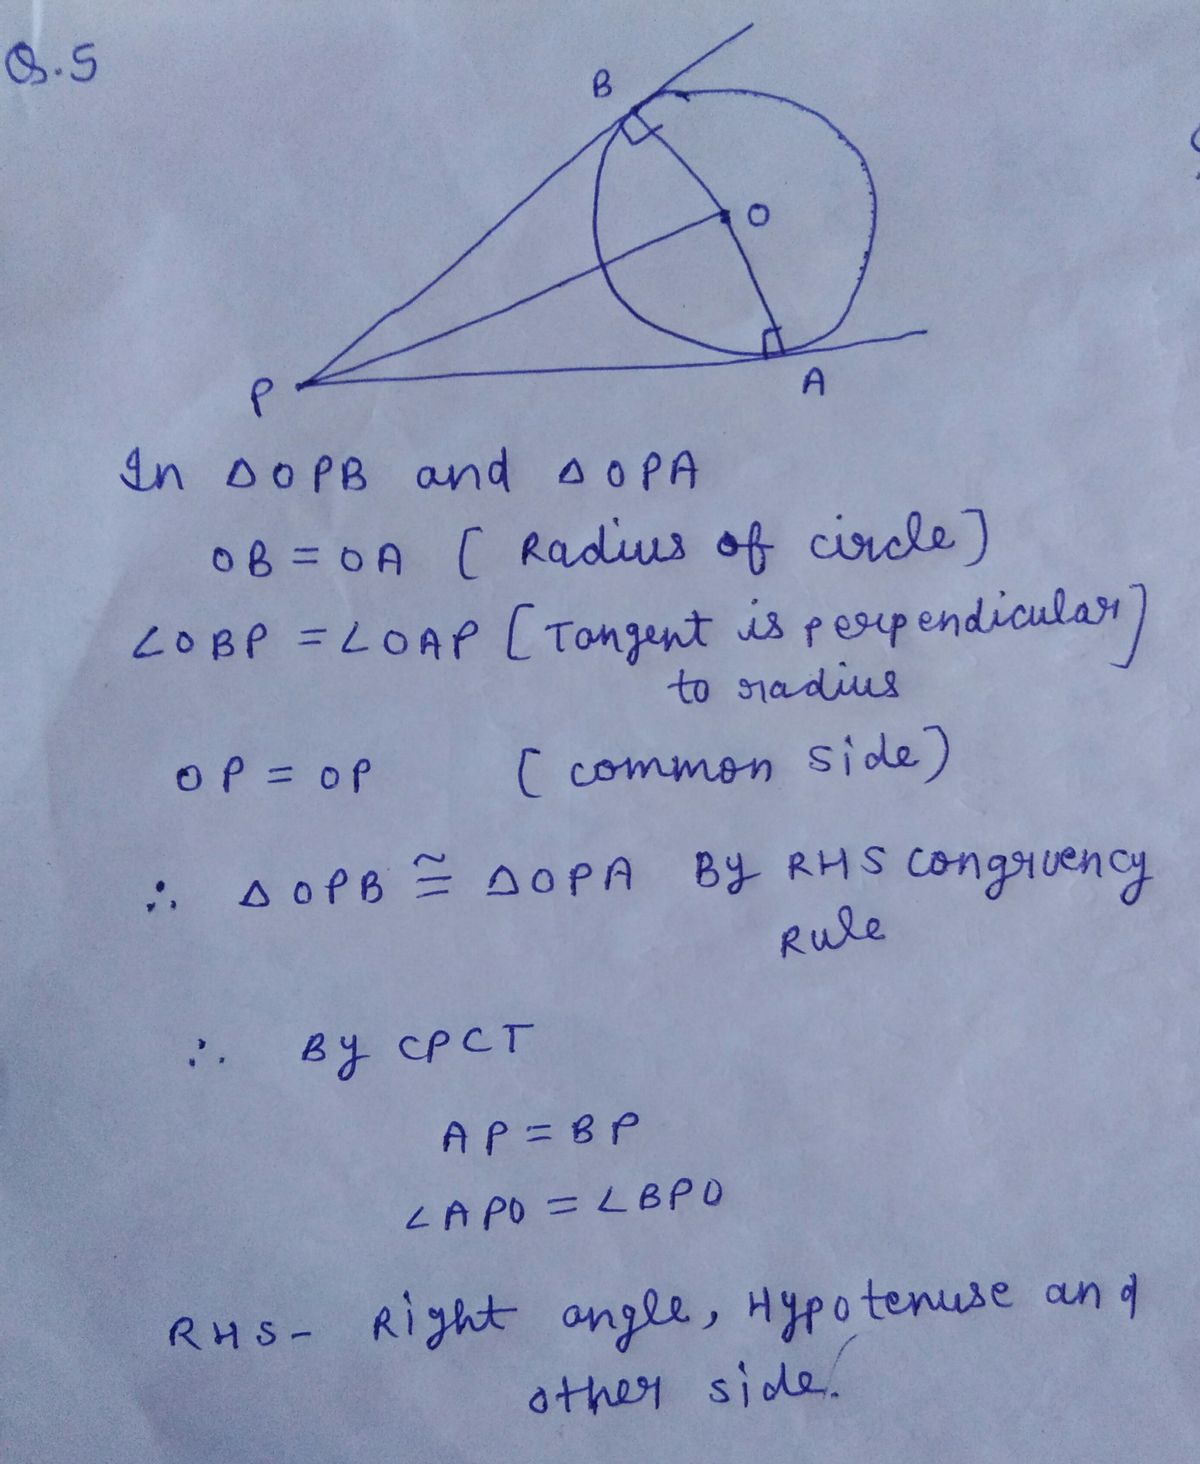 Q.5
B
O
P
A
In △OPB and △OPA
OB = OA [Radius of circle]
∠OBP = ∠OAP [Tangent is perpendicular]
to radius
OP = OP [common side)
∴ △OPB ≅ △OPA By RHS congruency
Rule
∴ By CPCT
AP = BP
∠APO = ∠BPO
RHS - Right angle, Hypotenuse and
other side.